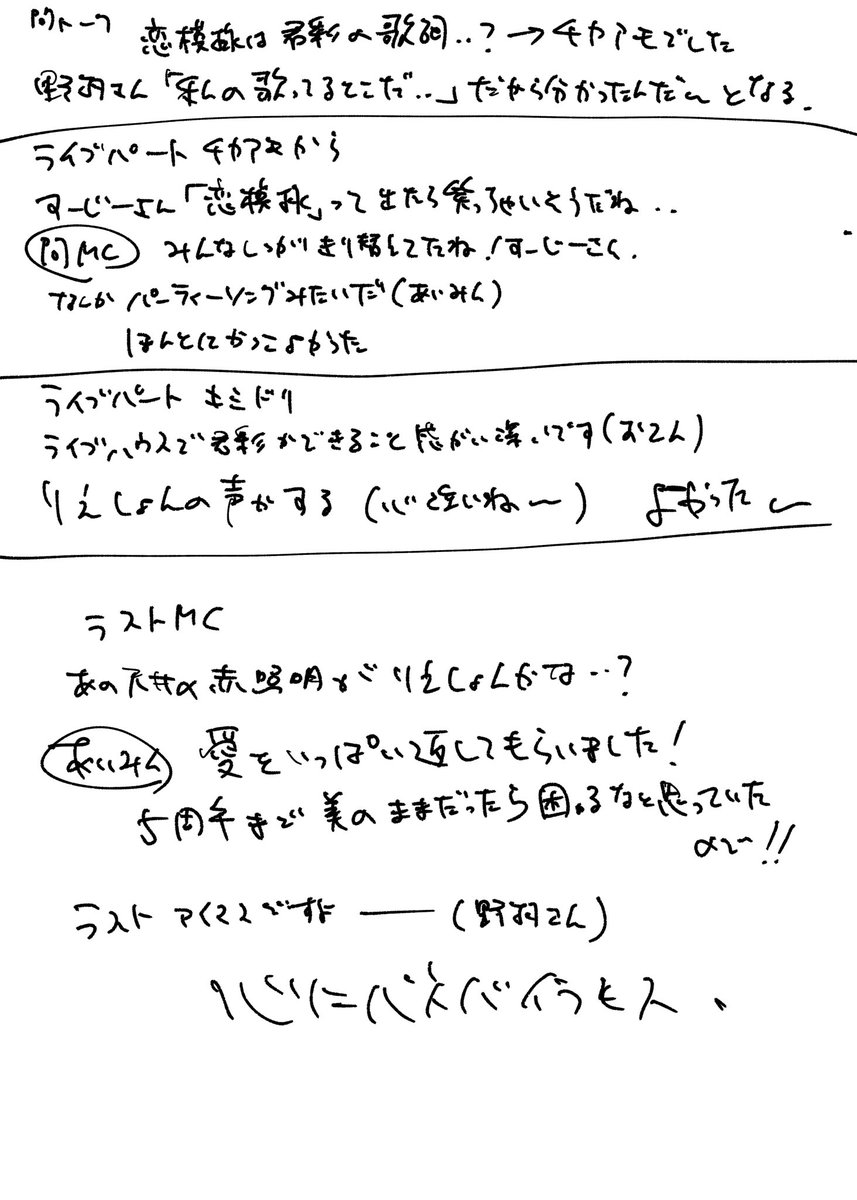 間トーク 恋模様は君彩の歌詞..?→チカアモでした
野羽さん「の歌ってるとこで..」だから分かったんだ~となる.
ライブパート チカアモから
すーじーさん「恋模様」って出たら笑っちゃいそうだね..
間MC みんなしっかり切り替えてたね!すーじーさん.
なんか パーティーソングみたいだ(あいみん)
ほんとにかっこよかった
ライブパート キミドリ
ライブハウスで君彩ができること感がい深いです(おさん)
りえしょんの声がする (心強いね~) よかった~
ラストMC
あの 赤照明が りえしょんかな..?
あいみん 愛をいっぱい返してもらいました!
5周年まで 美のままだったら困るなと思っていた
ので!!
ラスト アイマスですよ ―― (野羽さん)
心にパス バイ